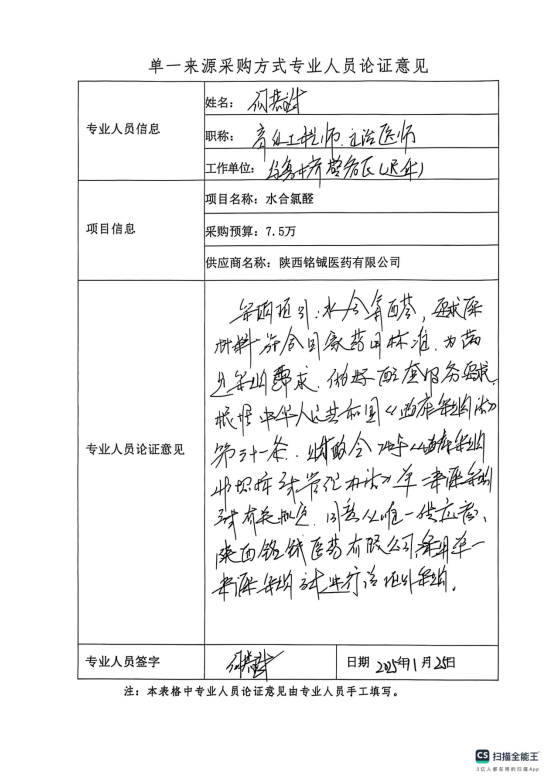 单一来源采购方式专业人员论证意见
专业人员信息
姓名：
职称： 高级工程师、主治医师
工作单位：
项目信息
项目名称：水合氯醛
采购预算：7.5万
供应商名称：陕西铭铖医药有限公司
专业人员论证意见
采购项目：水合氯醛，要求原
材料符合国家药用标准，为满
足采购需求，做好配套服务要求，
根据中华人民共和国《政府采购法》
第三十一条、财政令74号《政府采购
非招标方式管理办法》单一来源采购
有关规定，同意从唯一供应商，
陕西铭铖医药有限公司采用单一
来源采购方式进行该项目采购。
专业人员签字
日期 2025年11月25日
注：本表格中专业人员论证意见由专业人员手工填写。
CS 扫描全能王
3亿人都在用的扫描App